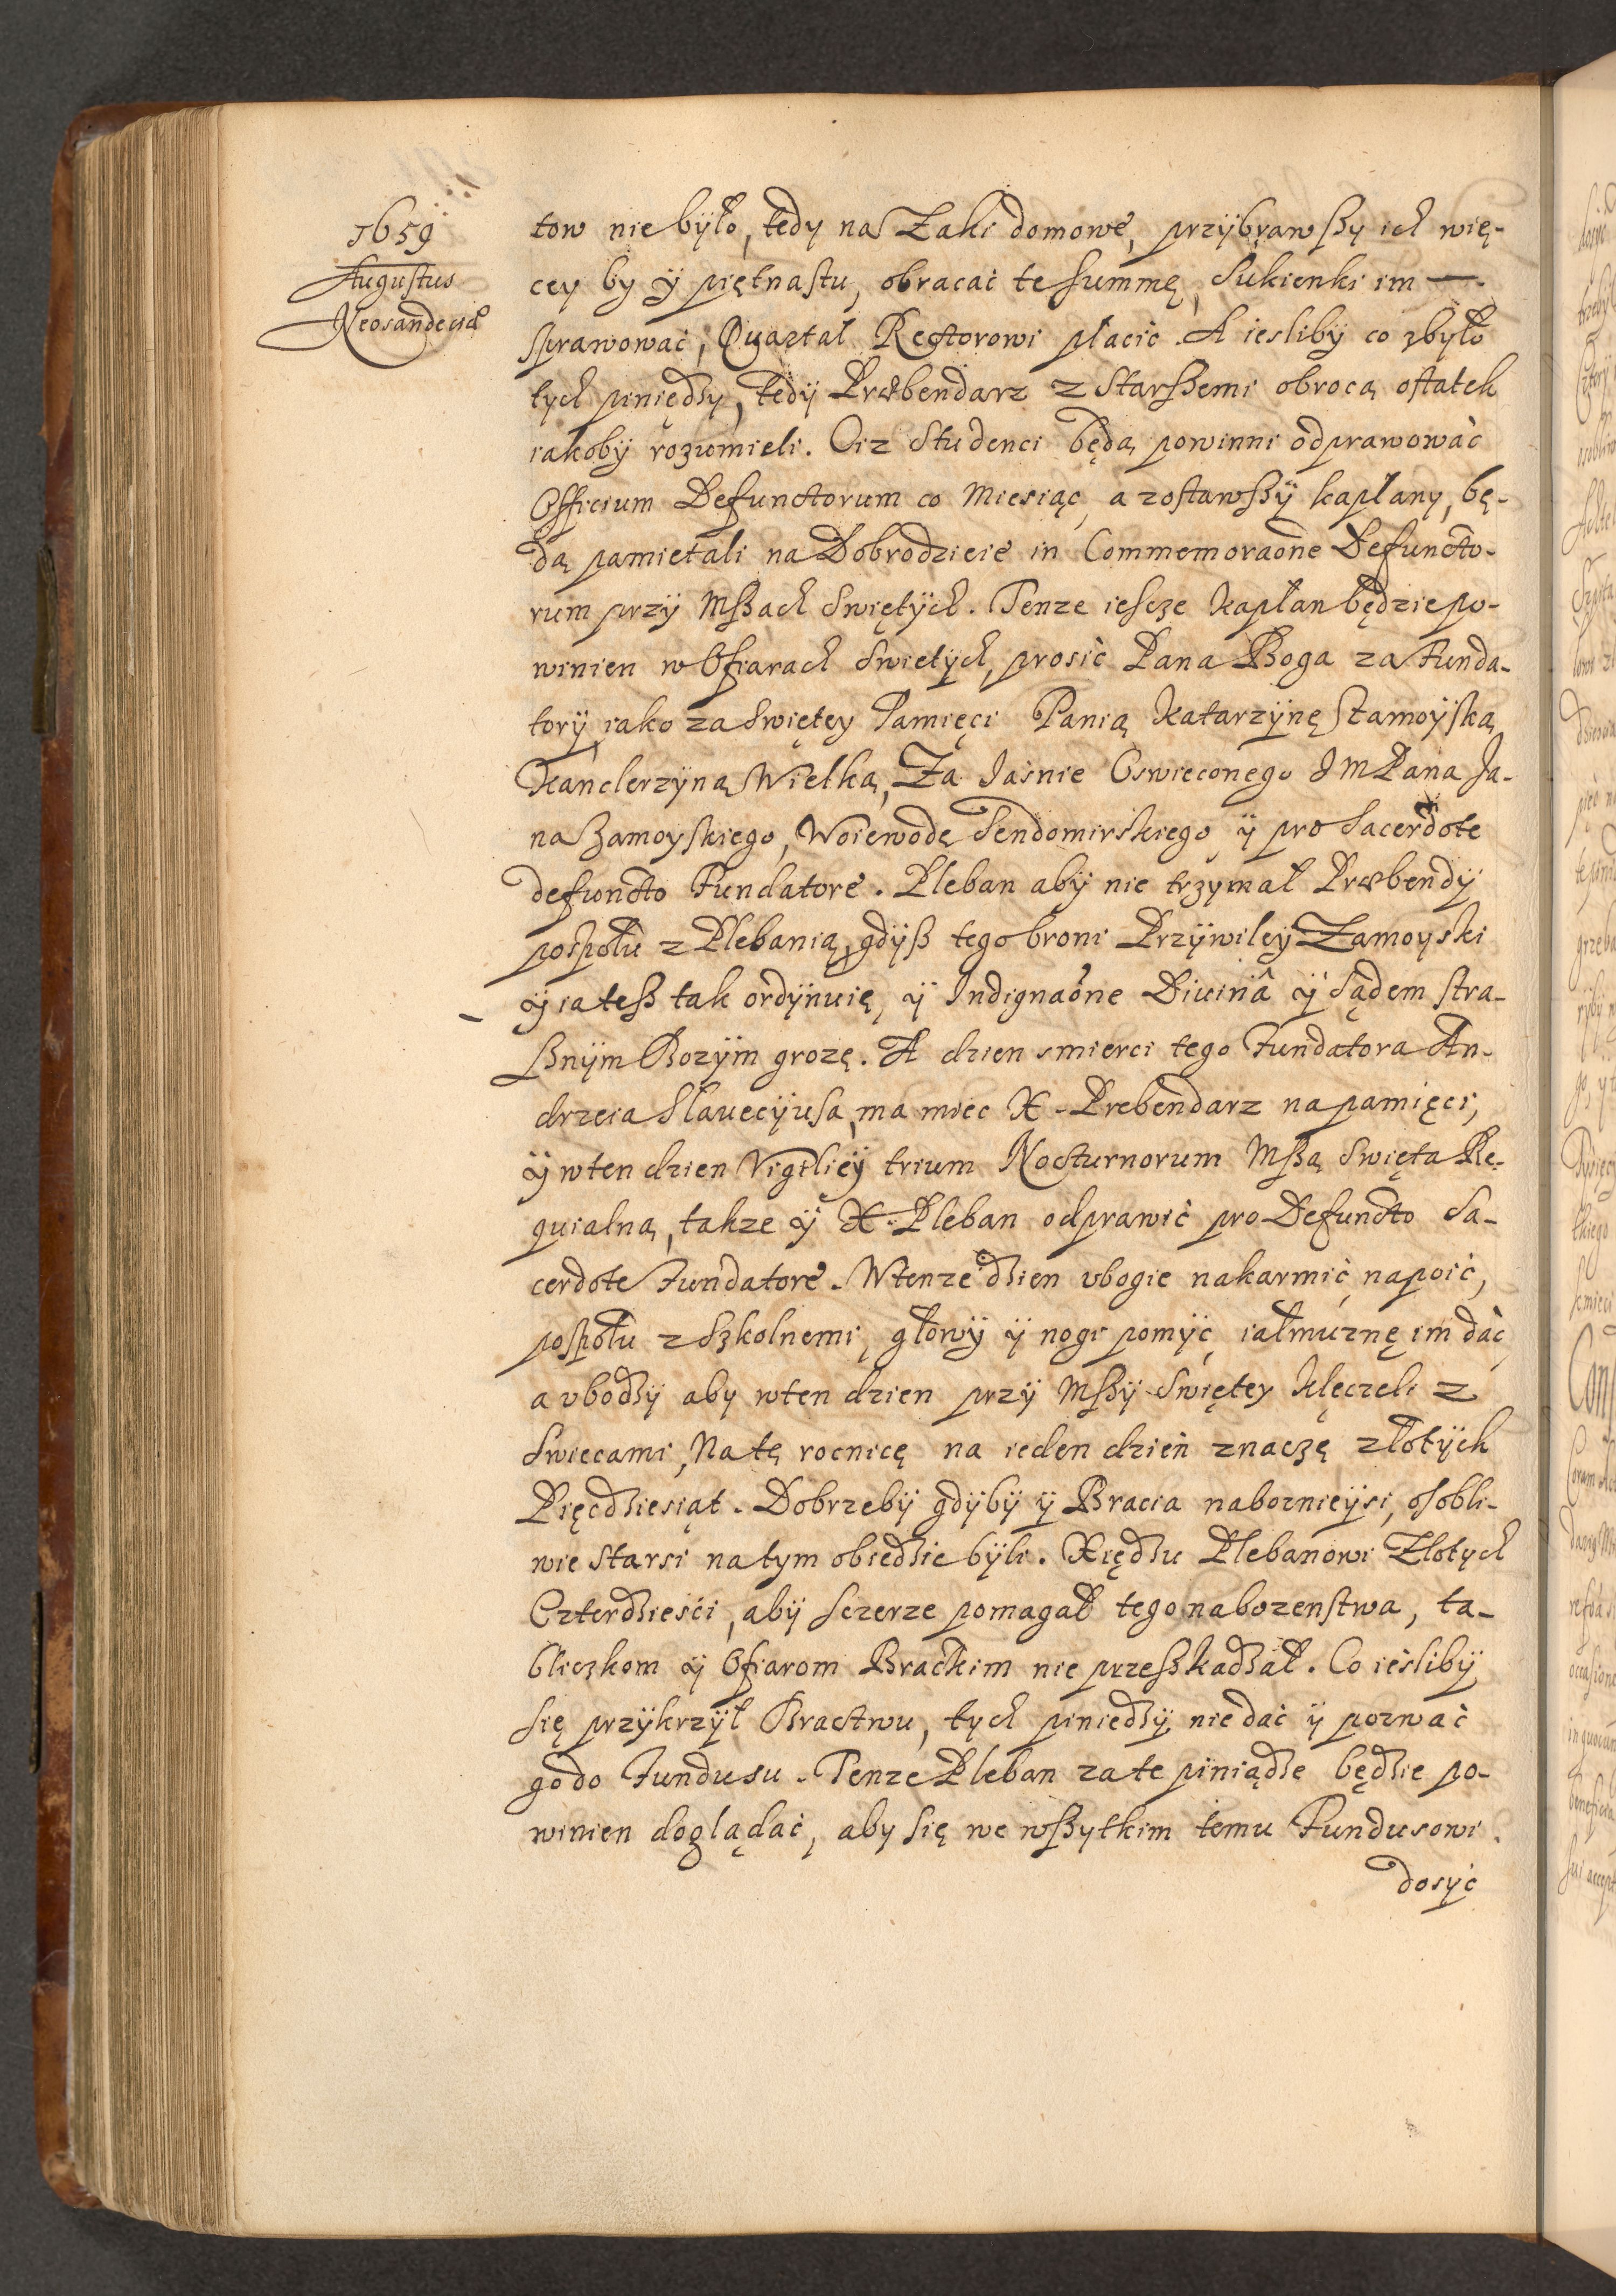 1659
Augustus
Neosandeciæ
tow nie było, tedy na Zaki domowe, przÿbrawszy ich wię-
cey by ÿ piętnastu, obracać te summę, Sukienki im —
sprawować, Quartał Rectorowi płacić. A iesliby co zbyło
tych piniędzy, tedÿ Præbendarz z Starszemi obrocą ostatek
iakobÿ rozumieli. Ciz Studenci będą powinni odprawować
Officium Defunctorum co Miesiąc, a zostawszÿ kapłany, bę-
dą pamietali na Dobrodzieie in Commemoraone Defuncto-
rum przÿ Mszach Swiętÿch. Tenze iescze Kapłan będzie po-
winien w Ofiarach Swietÿch, prosić Pana Boga za Funda-
torÿ, iako za Swiętey Pamięci Panią Katarzÿnę Stamoÿską
Kanclerzÿną Wielką, Za Jaśnie Oswieconego J M Pana Ja-
na Zamoyskiego, Woiewodę Sendomirskiego ÿ pro Sacerdote
defuncto Fundatore. Pleban abÿ nie trzymał Præbendÿ
pospołu z Plebanią, gdÿsz tego broni Przÿwiley Zamoyski
ÿ ia tesz tak ordÿnuię, ÿ Indignaone Diuinâ ÿ Sądem stra-
sznÿm Bozÿm grozę. A dzien smierci tego Fundatora An-
drzeia Slauecÿusa, ma miec X. Prebendarz na pamięci,
ÿ w ten dzien Vigiliey trium Nocturnorum Mszą Swięta Re-
quialną, takze ÿ X. Pleban odprawić pro Defuncto Sa-
cerdote Fundatore. W tenze dzien vbogie nakarmić, napoić,
pospołu z Szkolnemi, głowÿ ÿ nogi pomyć, iałmuznę im dać,
a vbodzÿ aby w ten dzien przÿ Mszÿ Swiętey klęczeli z
Swiecami, Na tę rocnicę na ieden dzień znaczę złotÿch
Pięcdziesiąt. Dobrzebÿ gdÿbÿ ÿ Bracia naboznieysi, osobli-
wie starsi na tym obiedzie bÿli. Xiędzu Plebanowi Złotych
Czterdziesci, abÿ sczerze pomagał tego nabozenstwa, ta-
bliczkom ÿ Ofiarom Brackim nie przeszkadzał. Co iesliby
się przÿkrzÿł Bractwu, tych piniedzÿ nie dać ÿ pozwać
go do Fundusu. Tenze Pleban za te piniądze będzie po-
winien doglądać, aby się we wszytkim temu Fundusowi
dosyć